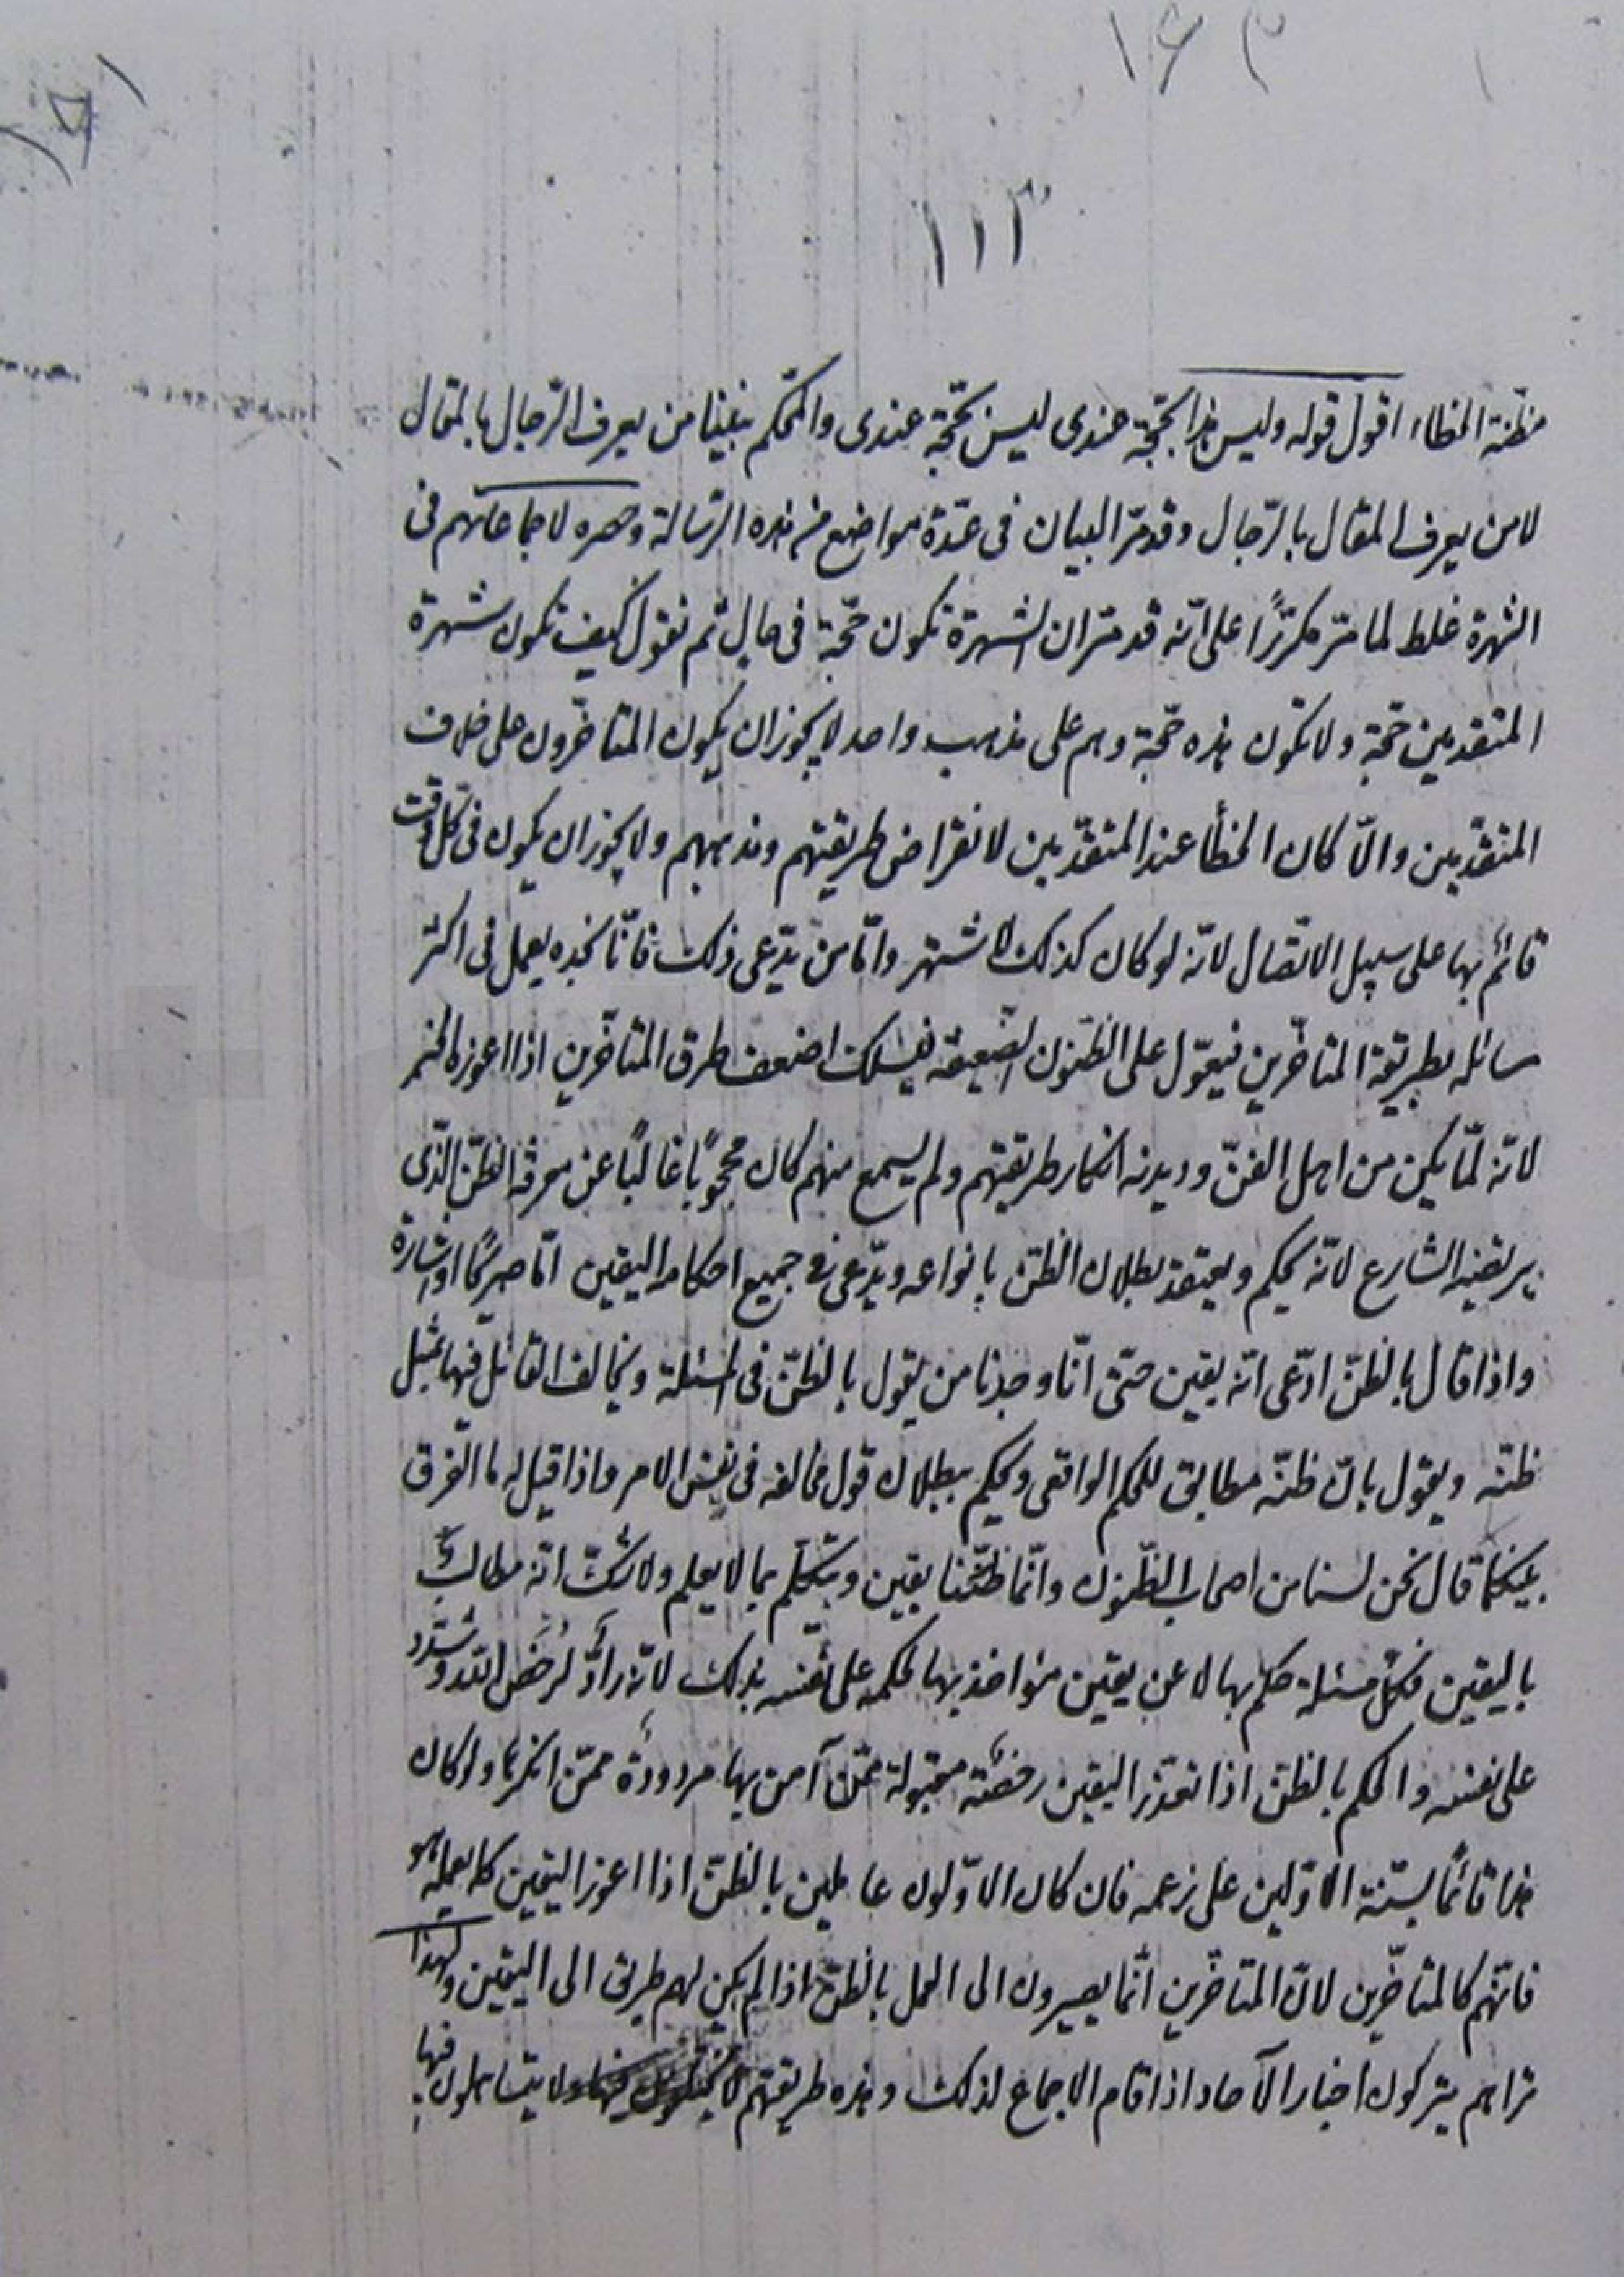 ١٦٣
١١٣
مظنّة الخطاء اقول قوله وليس هذا بحجّة عندى ليس بحجّة عندى والحكم بيننا من يعرف الرّجال بالمقال
لا من يعرف المقال بالرّجال وقد مرّ البيان فى عدّة مواضع من هذه الرّسالة وحصره لاجماعاتهم فى
الشهرة غلط لما مرّ مكرّرًا على انّه قد مرّ ان الشهرة تكون حجّة فى حال ثم نقول كيف تكون شهرة
المتقدمين حجّة ولا تكون هذه حجّة وهم على مذهب واحد لا يجوز ان يكون المتاخّرون على خلاف
المتقدّمين والّا كان الخطأ عند المتقدّمين لانقراض طريقتهم ومذهبهم ولا يجوز ان يكون فى كلّ وقت
قائم بها على سبيل الاتّصال لانّه لو كان كذلك لاشتهر وامّا من يدّعى ذلك فانّا نجده يعمل فى اكثر
مسائله بطريقة المتاخّرين فيعوّل على الظّنون الضّعيفة فيسلك اضعف طرق المتاخّرين اذا اعوزه الخبر
لانّه لمّا يكن من اهل الفنّ وديدنه انكار طريقتهم ولم يسمع منهم كان محجوبًا غالبًا عن معرفة الظنّ الّذى
يرتضيه الشارع لانّه يحكم ويعتقد بطلان الظّنّ بانواعه ويدّعى فى جميع احكامه اليقين امّا صريحًا او اشارة
واذا قال بالظنّ ادّعى انّه يقين حتّى انّا وجدنا من يقول بالظنّ فى المسئلة ويخالف القائل فيها بمثل
ظنّه ويقول بانّ ظنّه مطابق للحكم الواقعى ويحكم ببطلان قول مخالفه فى نفس الامر واذا قيل له ما الفرق
بينكما قال نحن لسنا من اصحاب الظّنون وانّما ظنّنا يقين ويتكلّم بما لا يعلم ولا شكّ انّه مطالبٌ
باليقين فكلّ مسئلة حكم بها لا عن يقين مؤاخذ بها لحكمه على نفسه بذلك لانّه رادٌّ لرُخَصِ اللّه وشدّد
على نفسه والحكم بالظنّ اذا تعذّر اليقين رخصة مقبولة ممّن آمن بها مردودة ممّن انكرها ولو كان
هذا قائمًا بسنّة الاوّلين على زعمه فان كان الاوّلون عاملين بالظنّ اذا اعوز اليقين كما يعمله هو
فانّهم كالمتاخّرين لانّ المتاخّرين انّما يصيرون الى العمل بالظنّ اذا لم يكن لهم طريق الى اليقين ولهذا
تراهم يتركون اخبار الآحاد اذا قام الاجماع لذلك وهذه طريقتهم ولا يتساهلون فيها